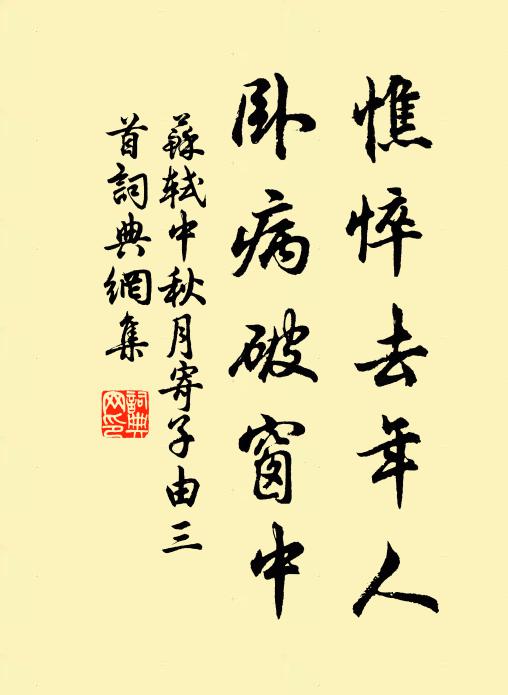 憔悴去年人
卧病破窗中
蘇軾中秋月寄子由三
首詞典網集
詞典网印